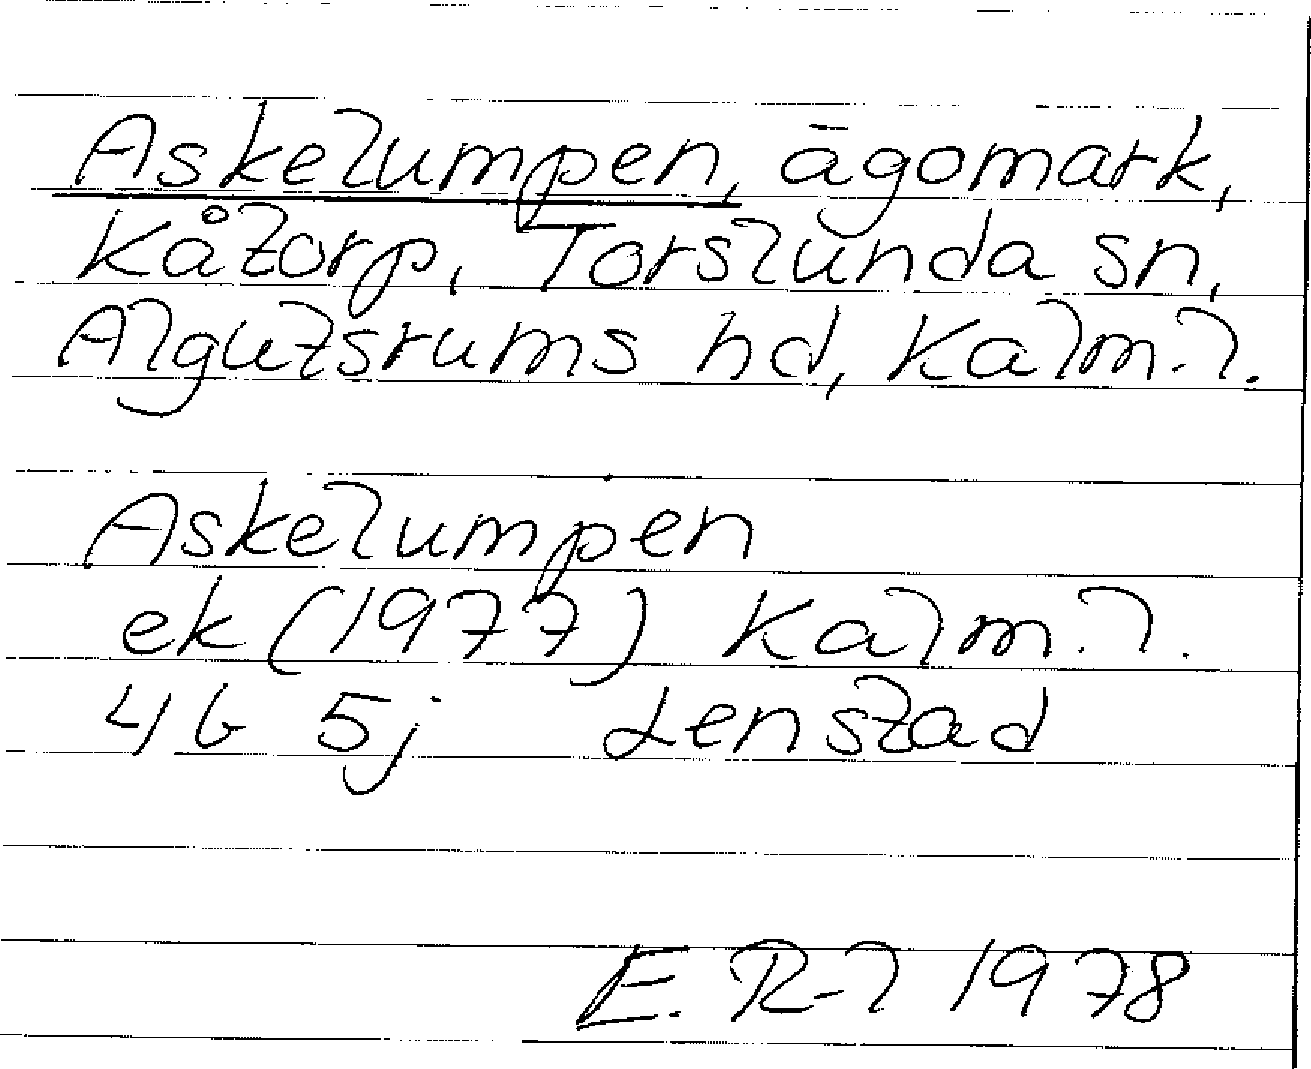 Askelumpen, ägomark,
Kåtorp, Torslunda sn,
Algutsrums hd, Kalm.l.
Askelumpen
ek (1977) Kalm.l.
4G 5j Lenstad
E. R-l 1978